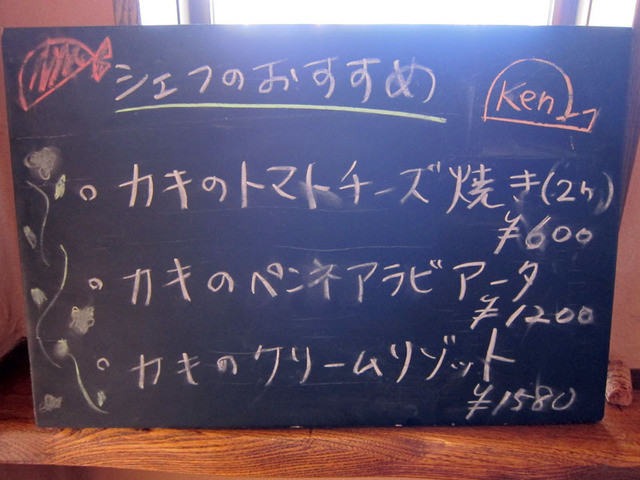 シェフのおすすめ
Ken
○ カキのトマトチーズ焼き(2ケ)
¥600
○ カキのペンネアラビアータ
¥1200
○ カキのクリームリゾット
¥1580